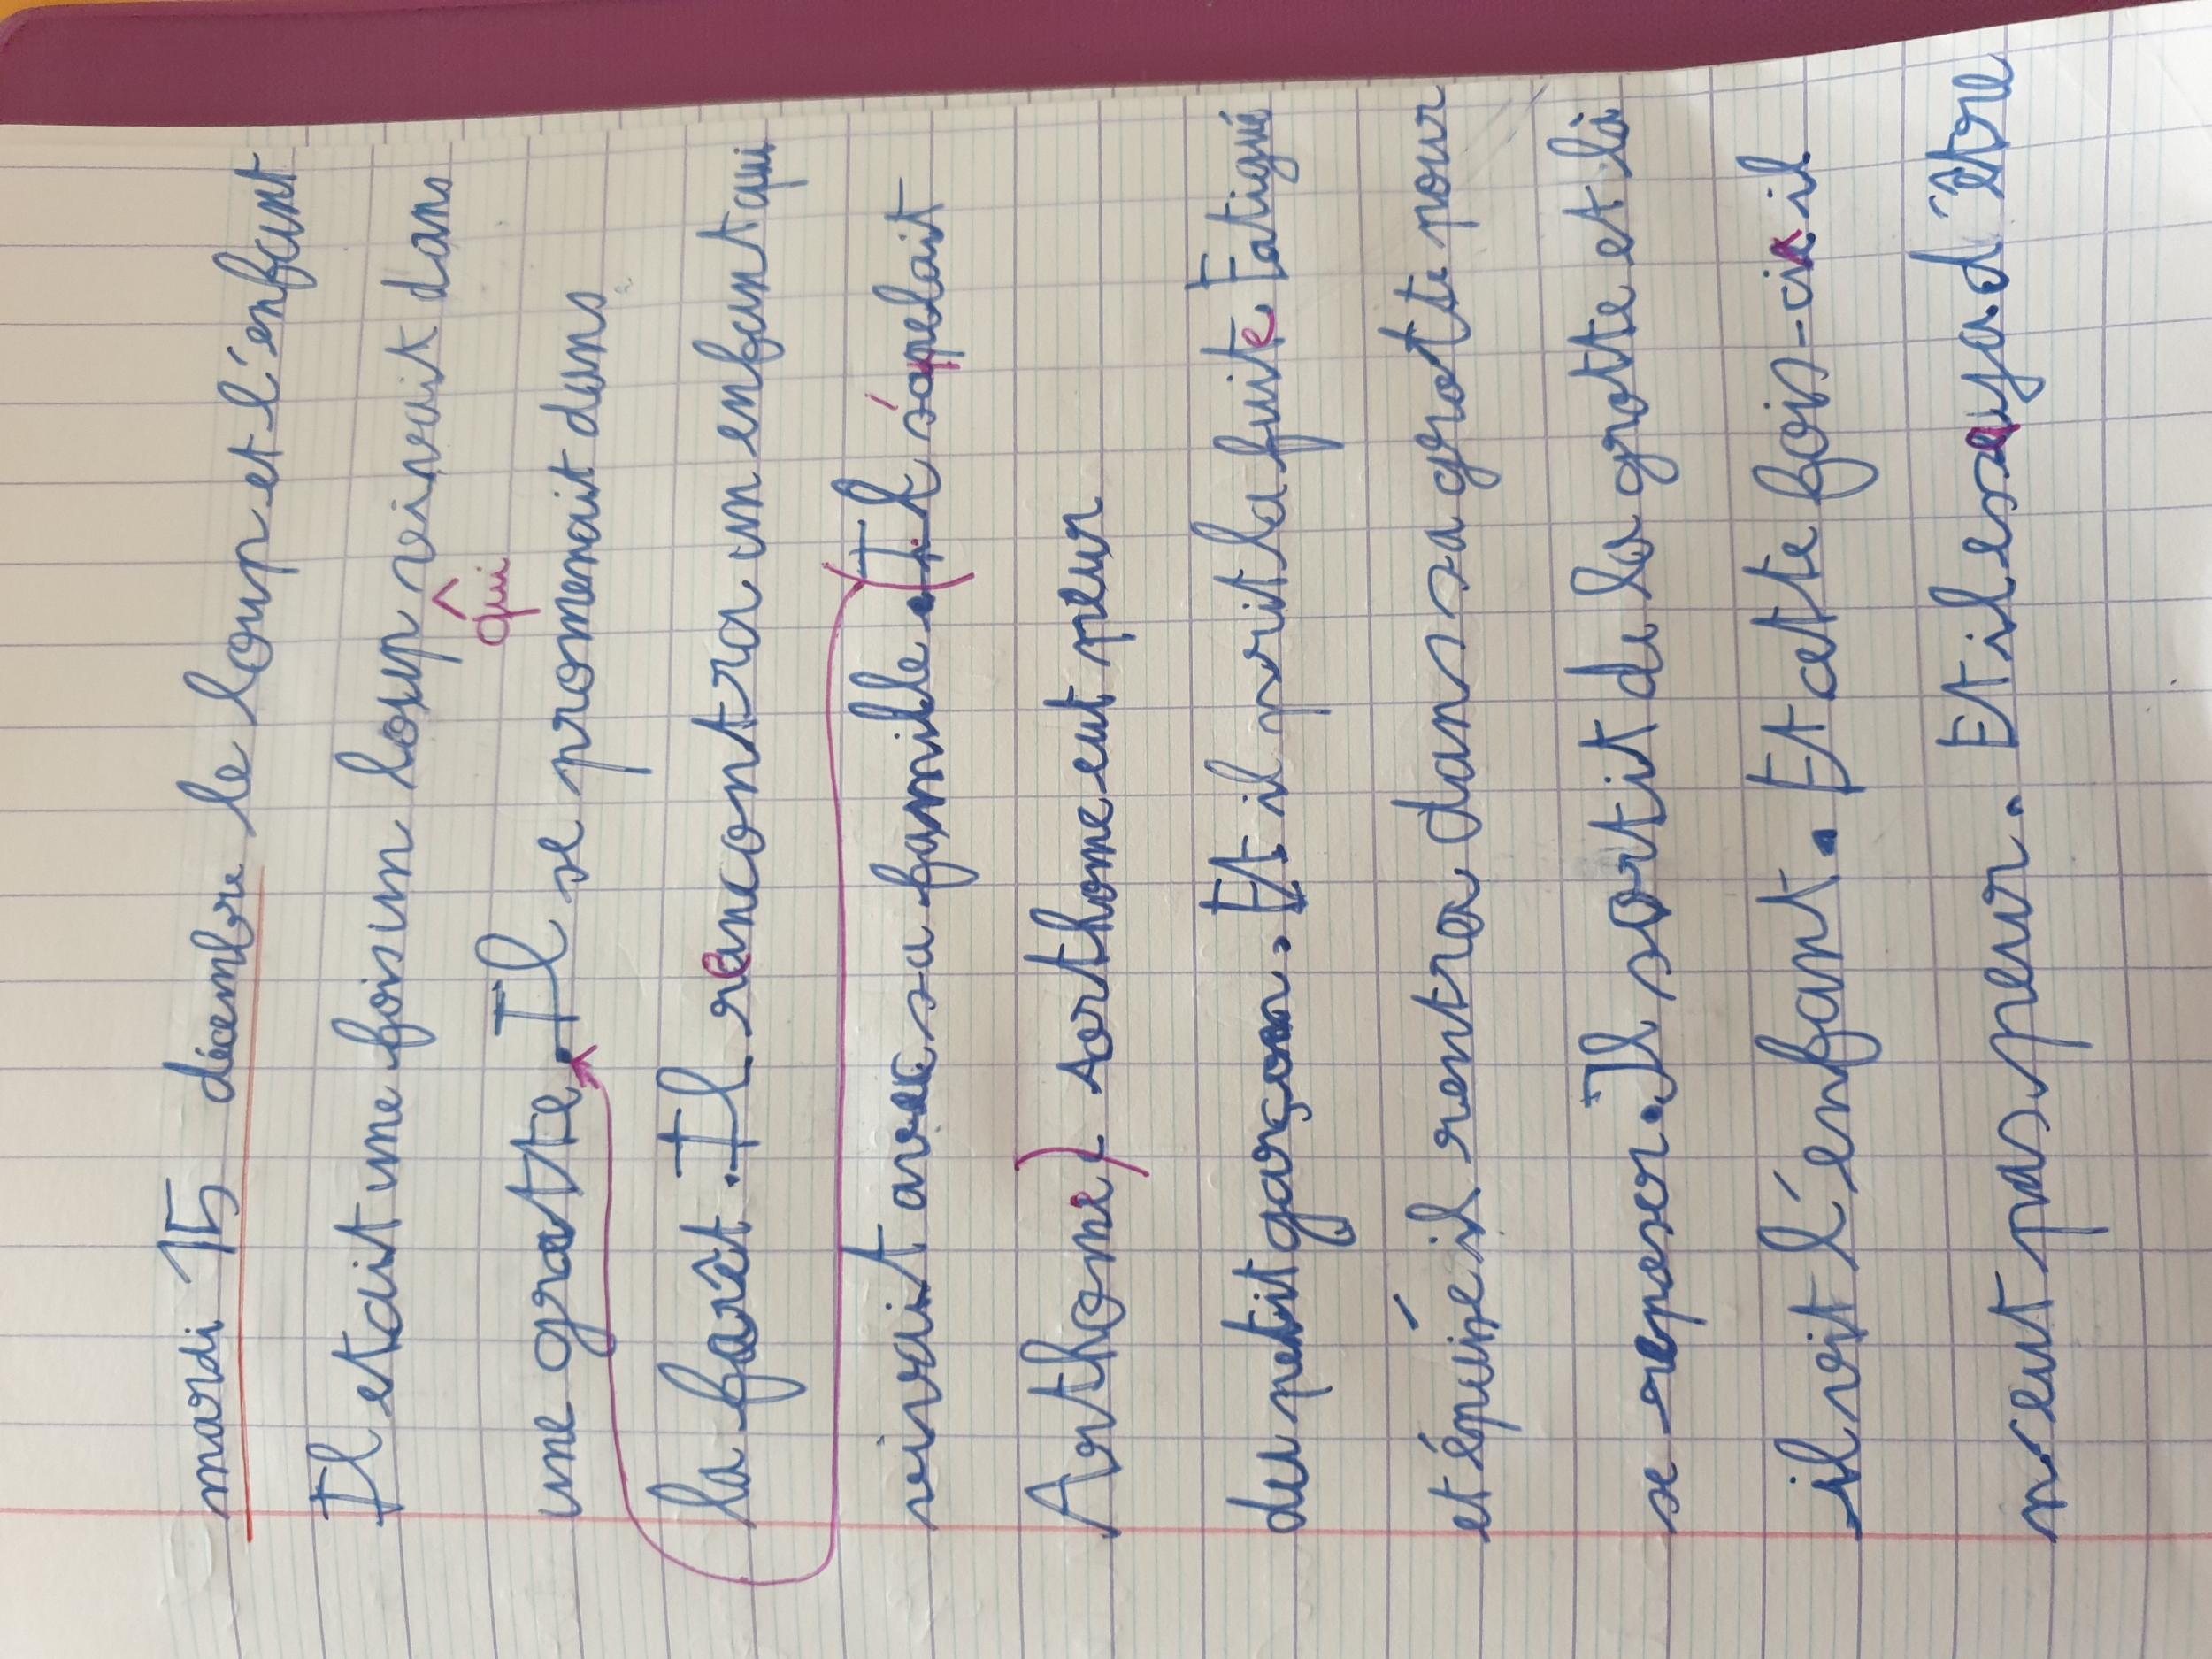 mardi 15 décembre le loup et l'enfant
Il etait une fois un loup vivait dans
qui
une grotte. Il se promenait dans
la forêt. Il rencontra un enfant qui
vivait avec sa famille. (Il s'appelait
Arthome). Arthome eut peur
du petit garçon. Et il prit la fuite. Fatigué
et épuisé il rentra dans sa grotte pour
se reposer. Il sortit de la grotte et là
il vit l'enfant. Et cette fois-ci il
n'eut pas peur. Et il essaya d'être